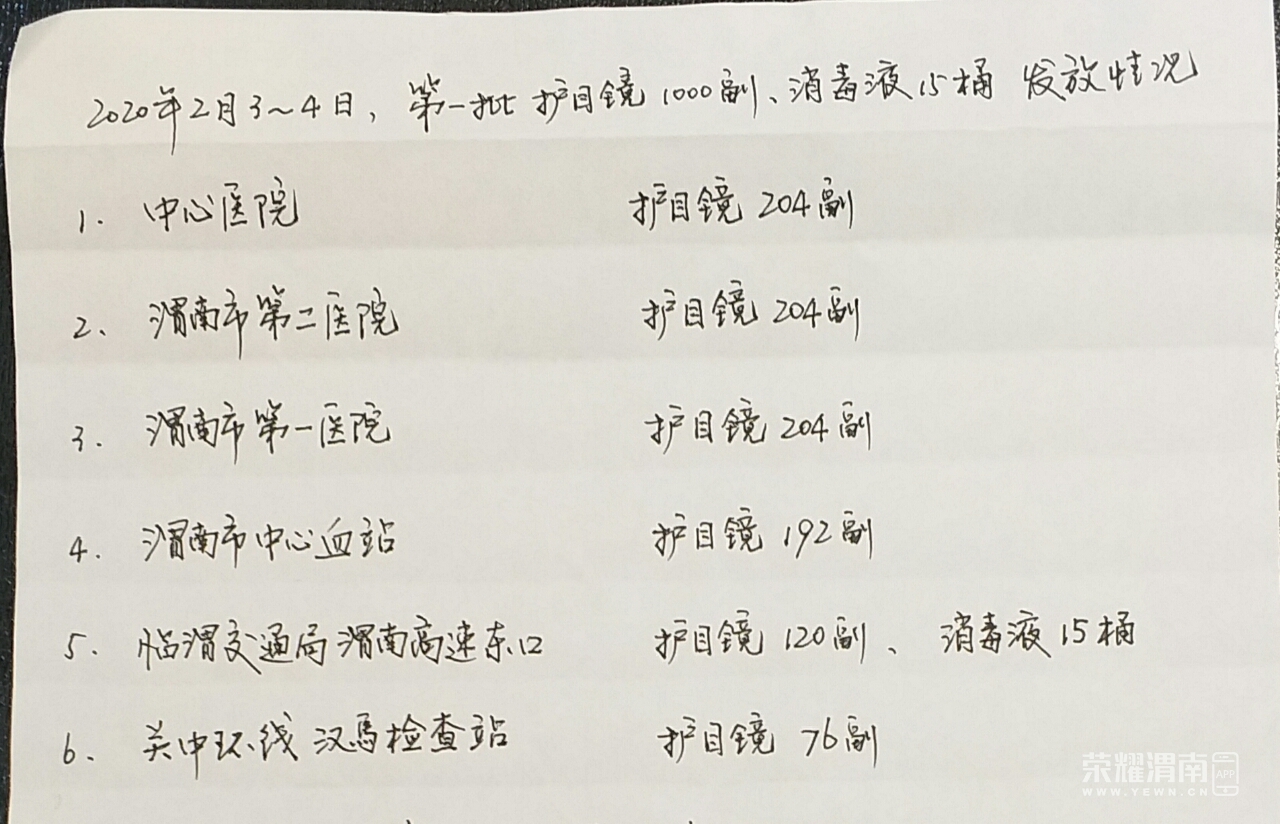 2020年2月3~4日，第一批护目镜1000副、消毒液15桶 发放情况
1. 中心医院 护目镜 204副
2、渭南市第二医院 护目镜 204副
3. 渭南市第一医院 护目镜 204副
4. 渭南市中心血站 护目镜 192副
5. 临渭交通局渭南高速东口 护目镜 120副、消毒液15桶
6. 关中环线汉马检查站 护目镜 76副
荣耀渭南 APP
WWW.YEWN.CN